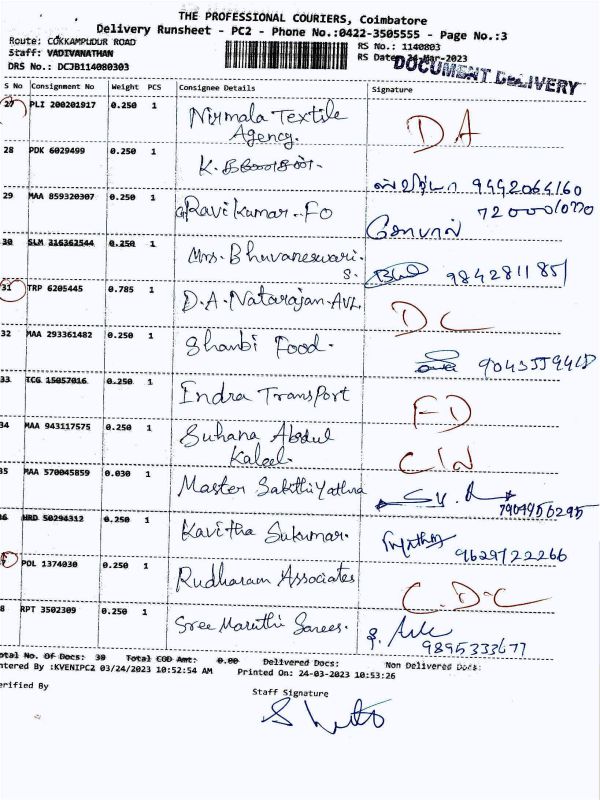 THE PROFESSIONAL COURIERS, Coimbatore
Delivery Runsheet - PC2 - Phone No.:0422-3505555 - Page No.:3
Route: COKKAMPUDUR ROAD
RS No.: 1140803
Staff: VADIVANATHAN
RS Date: 24-Mar-2023
DRS No.: DCJB114080303
DOCUMENT DELIVERY
S No Consignment No Weight PCS Consignee Details Signature
27 PLI 200201917 0.250 1 Nirmala Textile Agency. DA
28 PDK 6029499 0.250 1 K. 9442064160
29 MAA 859320307 0.250 1 Ravikumar..Fo கோபால்
30 SLM 316362544 0.250 1 Mrs. Bhuvaneswari. S. 9842811851
31 TRP 6205445 0.785 1 D.A. Natarajan. AVL. DC
32 MAA 293361482 0.250 1 Shanbi Food.
33 TCG 15057016 0.250 1 Indra Transport FD
34 MAA 943117575 0.250 1 Suhana Abdul Kaleel. C/N
35 MAA 570045859 0.030 1 Master Sakthiyathra 7904956295
36 HRD 50294312 0.250 1 Kavitha Sukumar. 9629722266
POL 1374030 0.250 1 Rudharam Associates C.D.C
8 RPT 3502309 0.250 1 Sree Maruthi Sarees. 9895333677
otal No. Of Docs: 38 Total COD Amt: 0.00 Delivered Docs: Non Delivered Docs:
ntered By :KVENIPC2 03/24/2023 10:52:54 AM Printed On: 24-03-2023 10:53:26
erified By
Staff Signature